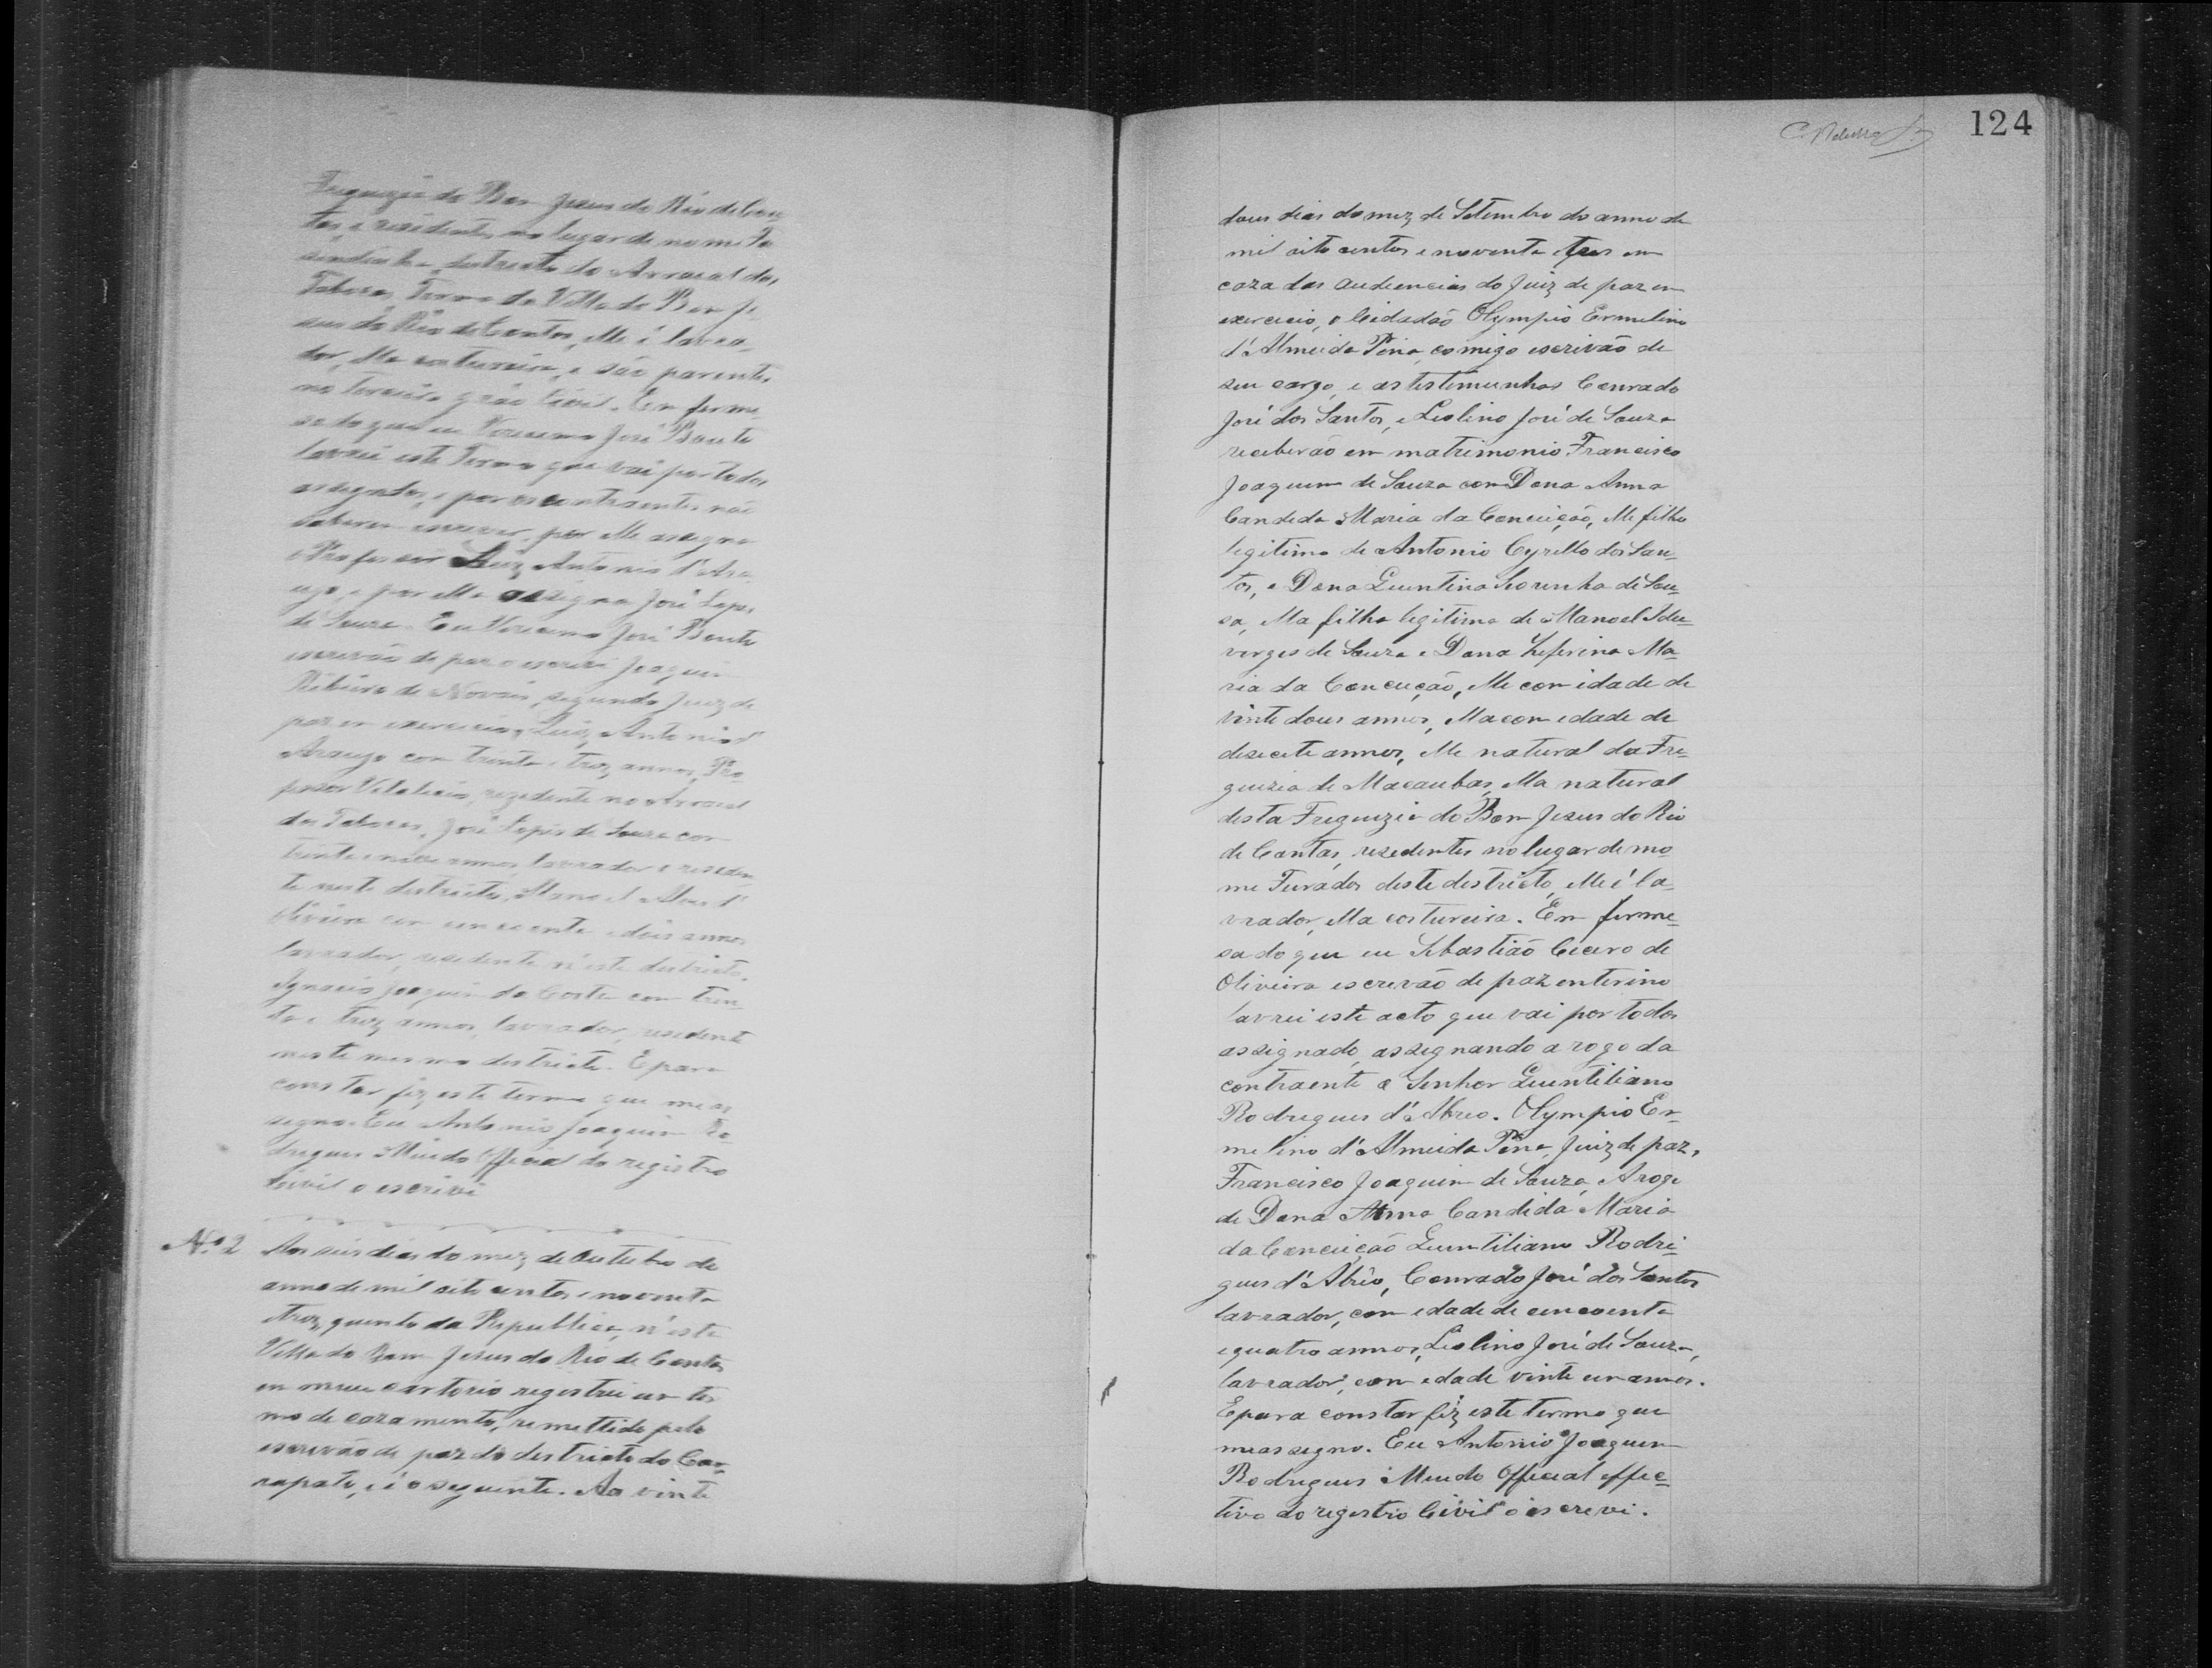 Freguezia do Bom Jesus do Rio de Con
tas, e residentes no lugar de nome Ta
districto do Arraial dos
Termo da Villa do Bom Je
sus do Rio de Contas, elle é lavra
dor, ella costureira, e são parentes
no terceiro gráo Civil. Em firme
sa do que eu Verissimo José Bento
lavrei este termo que vai por todos
assignados, e por os contraentes não
saberem escrever, por elle assigna
o Professor Luiz Antonio d'Ara
ujo, e por ella assigna José Lopes
de Souza. Eu Verissimo José Bento
escrivão de paz o escrevi Joaquim
Ribeiro de Novais, segundo Juiz de
paz em exercicio, Luiz Antonio d'
Araujo com trinta e trez annos, Pro
fessor Vitalicio, rezidente no Arraial
das José Lopes de Souza com
trinta e nove annos, lavrador e residen
te neste districto, Manoel Alves d'
Oliveira com cincoenta e dois annos
lavrador, residente n'este districto.
Ignacio Joaquim da Costa com trin
ta e trez annos, lavrador, residente
neste mesmo districto. E para
constar fiz este termo que me as
signo. Eu Antonio Joaquim Ro
drigues Official do registro
Civil o escrivi
Nº 2 Aos seis dias do mez de Outubro do
anno de mil oito centos e noventa
e trez, quinto da Republica, n'esta
Villa do Bom Jesus do Rio de Contas
em meu cartorio registrei um ter
mo de cazamento, remettido pelo
escrivão de paz do destricto do Car
rapato, e é o seguinte. Ao vinte
124
dous dias do mez de Setembro do anno de
mil oito centos e noventa e tres em
caza das audiencias do Juiz de paz em
exercicio, o Cidadão Olympio Ermelino
d'Almeida Pina, comigo escrivão de
seu cargo, e as testemunhas Conrado
José dos Santos, e Liolino José de Souza
receberão em matrimonio Francisco
Joaquim de Souza com Dona Anna
Candida Maria da Conceição, elle filho
legitimo de Antonio Cyrillo dos San-
tos, e Dona Quintina de Sou-
sa, ella filha legitima de Manoel
de Souza e Dona Zeferina Ma-
ria da Conceição, elle com idade de
vinte dous annos, ella com edade de
desecete annos, elle natural da Fre-
guezia de Macaubas, ella natural
desta Freguezia do Bom Jesus do Rio
de Contas, resedentes no lugar de no
me Furados deste destricto, elle é la-
vrador, ella costureira. Em firme-
sa do que eu Sebastião Cicero de
Oliveira escrevão de paz enterino
lavrei este acto que vai por todos
assignado, assegnando a rogo da
contraente o Senhor Quintiliano
Rodrigues d'Abreo. Olympio Er-
melino d'Almeida Pina, Juiz de paz,
Francisco Joaquim de Souza, A rogo
de Dona Anna Candida Maria
da Conceição Quintiliano Rodri-
gues d'Abrêo, Conrado José dos Santos
lavrador, com edade de cencoenta
e quatro annos, Liolino José de Souza,
lavrador, com edade vinte um annos.
E para constar fiz este termo que
me assegno. Eu Antonio Joaquim
Rodrigues Official effec-
tivo do registro Civil o escrevi.